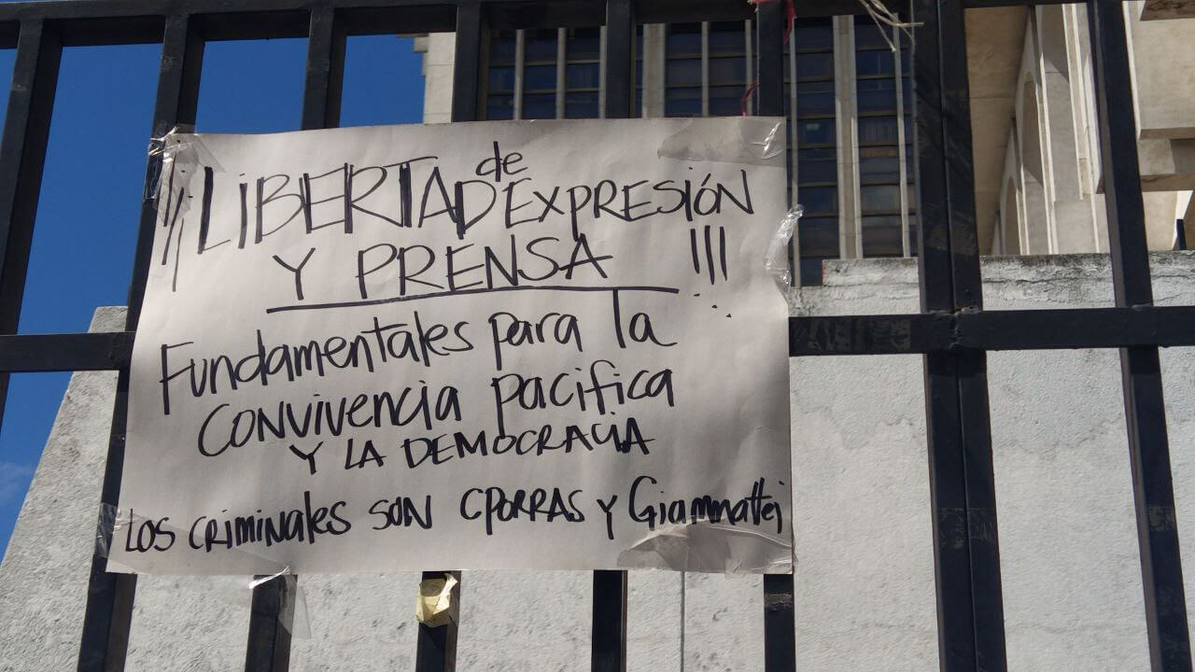 ¡¡LIBERTAD de EXPRESIÓN
Y PRENSA !!!
Fundamentales para la
CONVIVENCIA pacifica
Y LA DEMOCRACIA
LOS CRIMINALES SON CPORRAS Y Giammattei